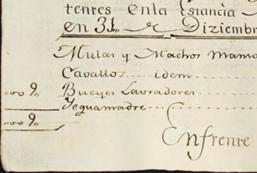 tentes en la Estancia
en 31 de Diziemb
Mulas y Machos mans
Cavallos.... idem
000 9, Bueyes Lavradores
Yeguamadre
000 9,
Enfrente